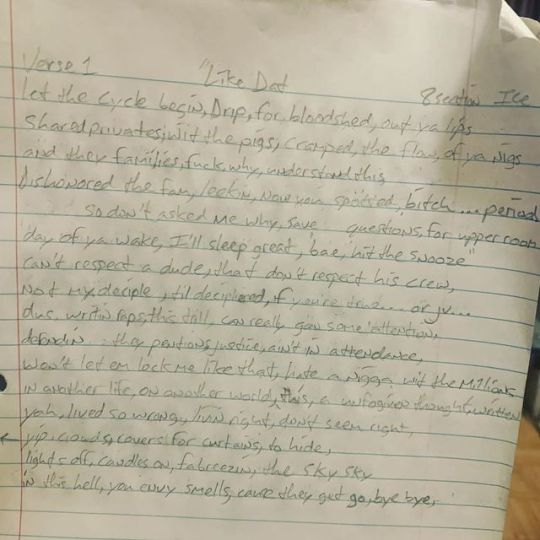 Verse 1
"Like Dat
8 seatin Ice
Let the Cycle begin, Drip, for bloodshed, out ya lips
Shared privates, wit the pigs, cramped, the flow, of ya nigs
and they families, fuck, why, understand this,
dishonored the fam, leekin, now you spotted, bitch... period
So don't asked me why, save questions, for upper room
day of ya wake, I'll sleep great, bae, hit the snooze"
can't respect a dude, that don't respect his crew,
Not my deciple, til deciphered, if you're true.... or ju...
dus, writin raps, this tall, can really gain some attention,
defendin they positions, justice, ain't in attendance,
won't let em lock me like that, hate a nigga wit the
in another life, on another world, this, a unforgiven thought, written
yah, lived so wrong, livin right, don't seem right,
yip, clouds, covers for curtains, to hide,
lights off, candles on, fabreezin, the sky sky
in this hell, you envy smells, cause they got go, bye bye,